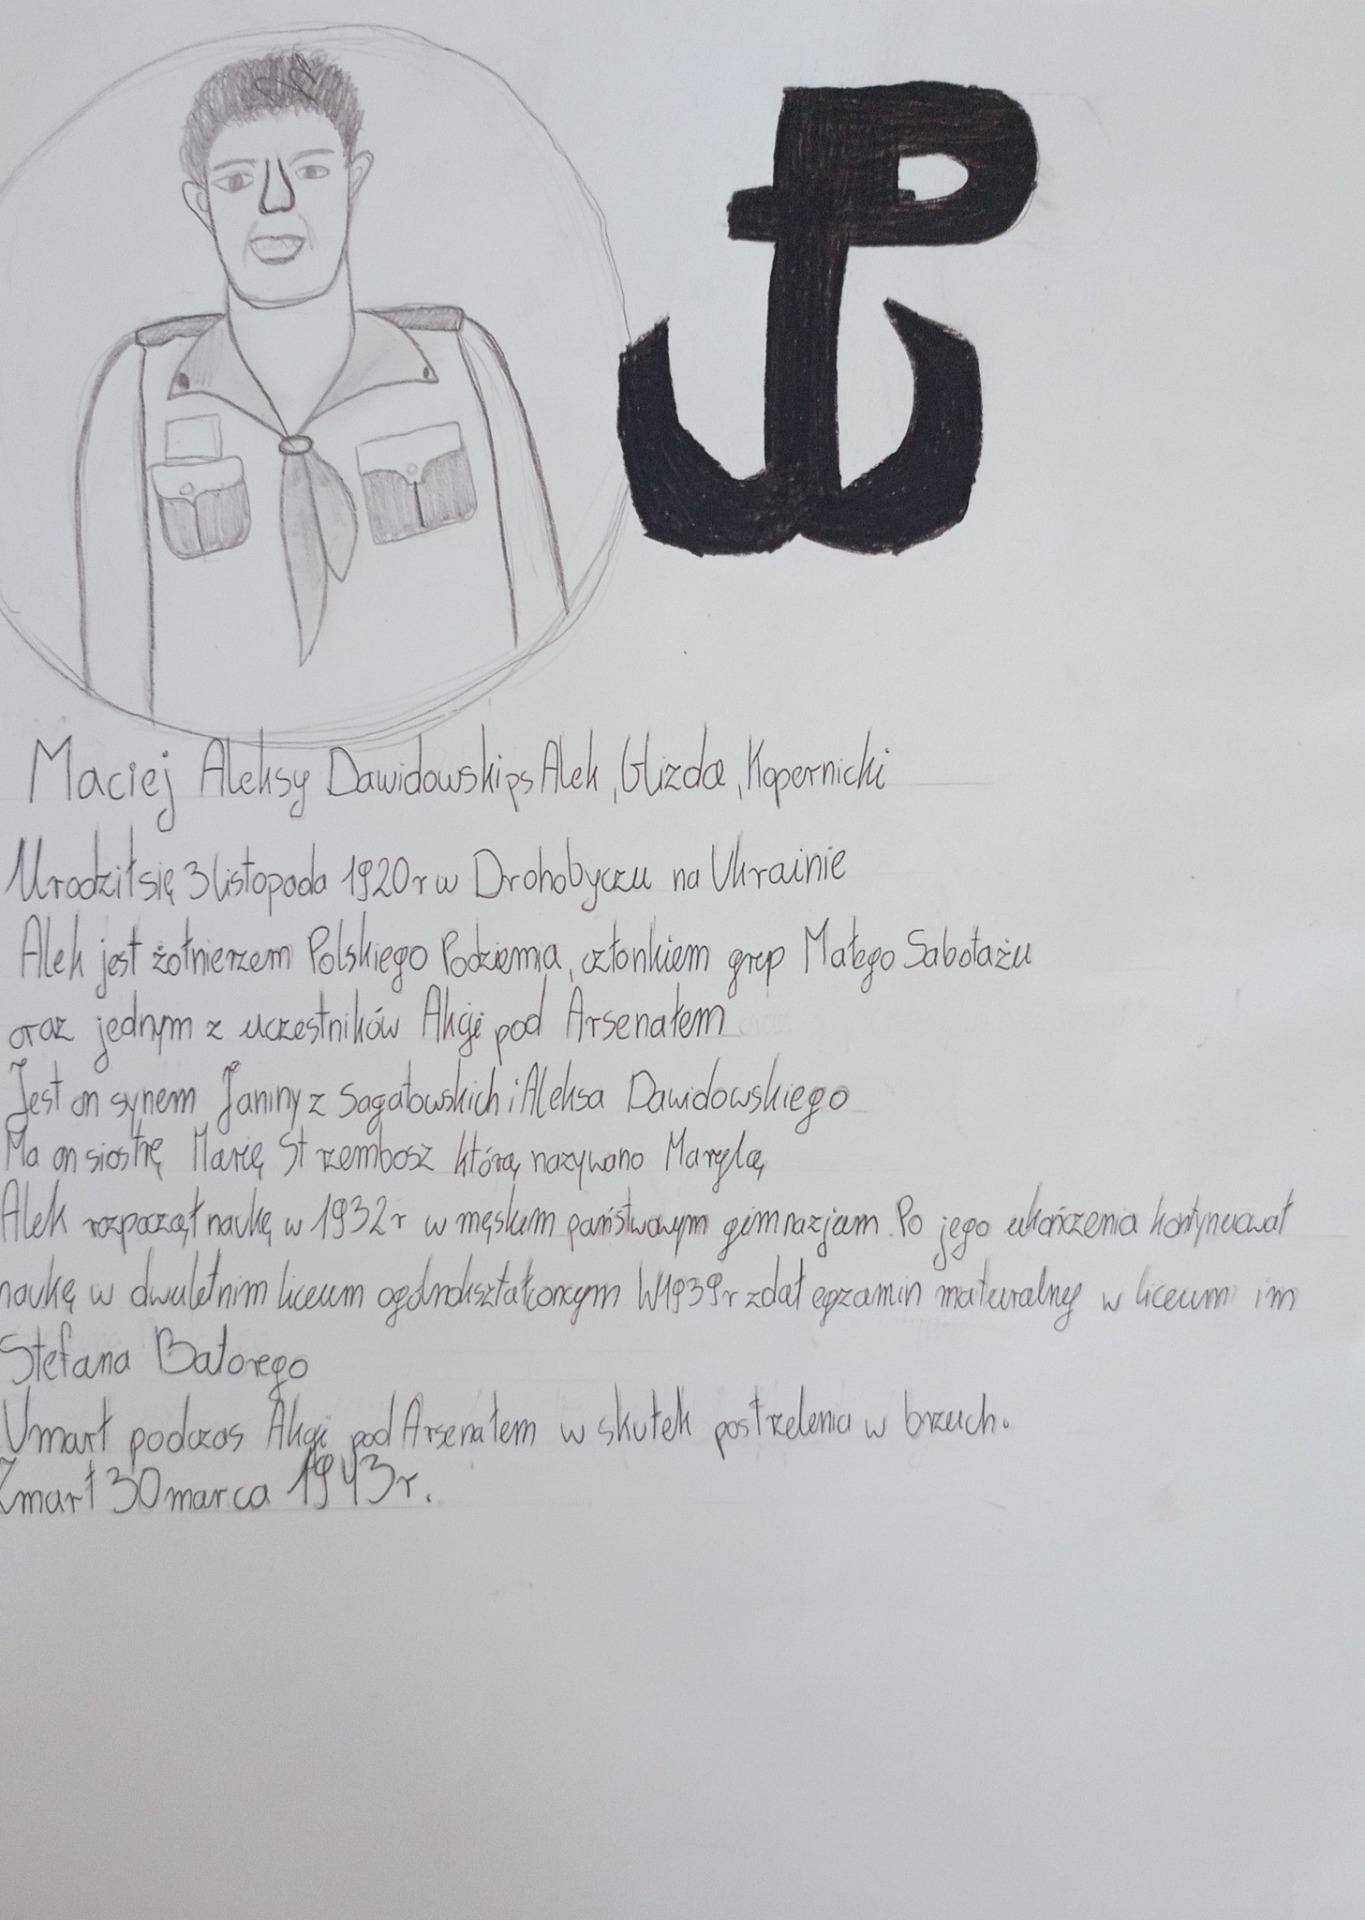 Maciej Aleksy Dawidowski ps Alek, Glizda, Kopernicki
Urodził się 3 listopada 1920 r w Drohobyczu na Ukrainie
Alek jest żołnierzem Polskiego Podziemia, członkiem grup Małego Sabotażu
oraz jednym z uczestników Akcji pod Arsenałem
Jest on synem Janiny z Sagatowskich i Aleksa Dawidowskiego
Ma on siostrę Marię Strzembosz którą nazywano Marylą
Alek rozpoczął naukę w 1932 r w męskim państwowym gimnazjum. Po jego ukończenia kontynuował
naukę w dwuletnim liceum ogólnokształconcym W 1939 r zdał egzamin maturalny w liceum im
Stefana Batorego
Umarł podczas Akcji pod Arsenałem w skutek postrzelenia w brzuch.
Zmarł 30 marca 1943 r.